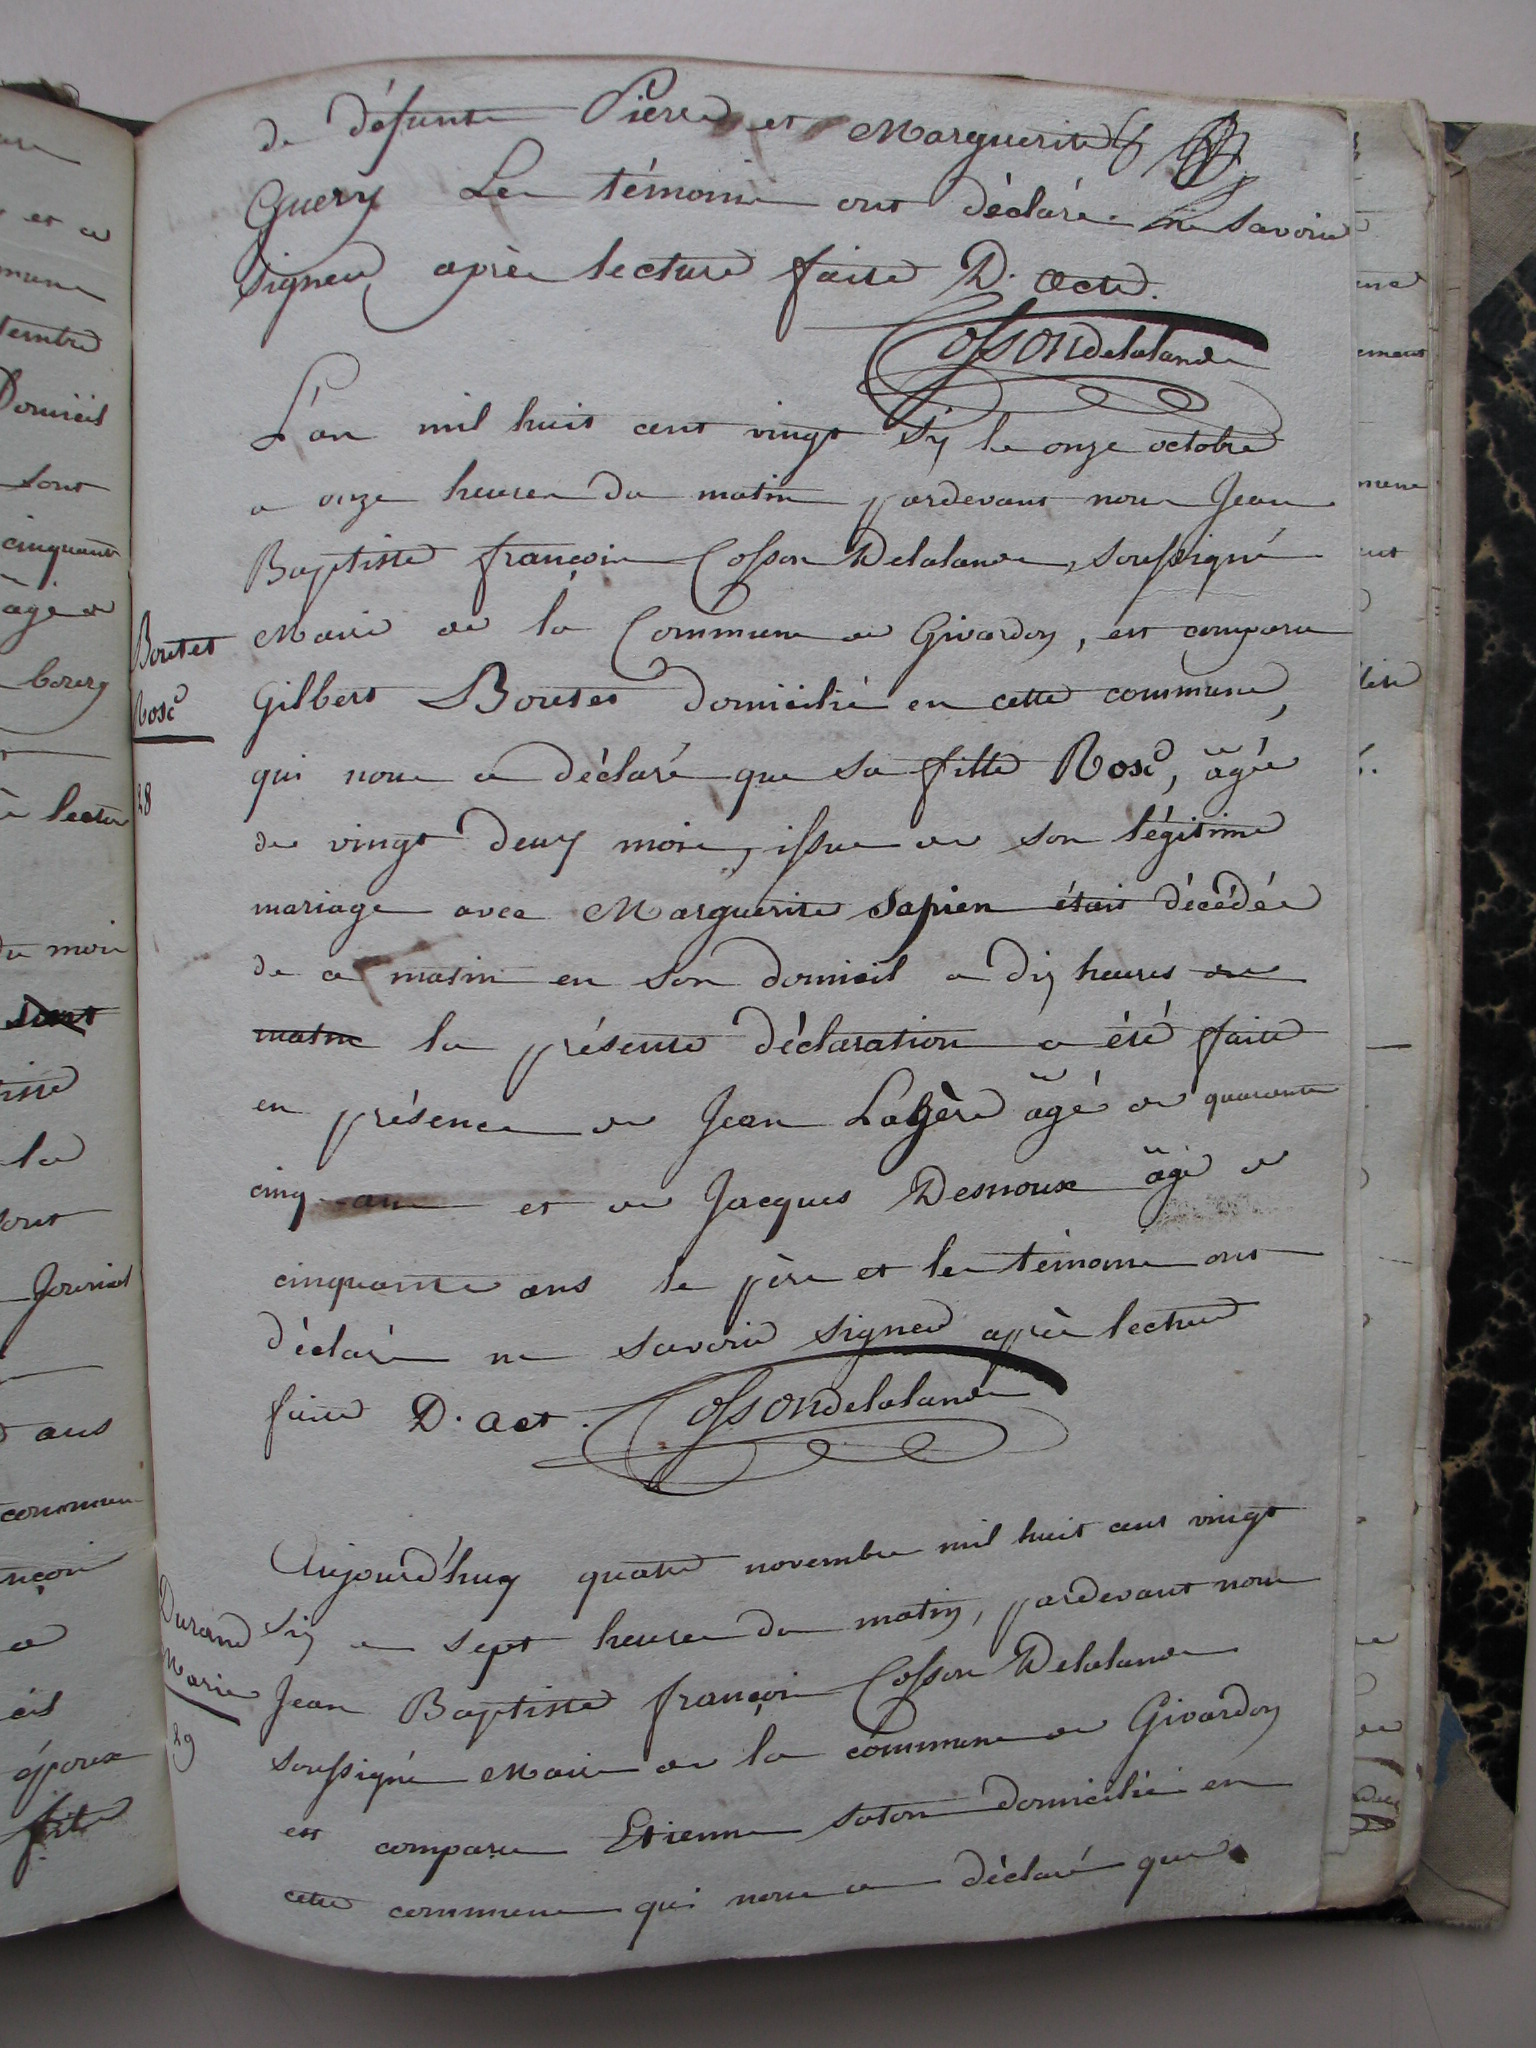 de défunts Pierre et Marguerite
Guery Les témoins ont déclaré ne savoir
signer après lecture faite D. Acte.
Cosson delalande
L'an mil huit cent vingt six le onze octobre
a onze heures du matin pardevant nous Jean
Baptiste françois Cosson Delalande, soussigné
Maire de la Commune de Givardon, est comparu
Gilbert Boutet domicilié en cette commune,
qui nous a déclaré que sa fille Rose, âgée
de vingt deux mois, issue de son légitime
mariage avec Marguerite sapien était décédée
de ce matin en son domicil a dix heures du
matin la présente déclaration a été faite
en présence de Jean Lagère âgé de quarante
cinq ans et de Jacques Desnoux âgé de
cinquante ans le père et les témoins ont
déclaré ne savoir signer après lecture
faite D. act.
Cosson delalande
Boutet
Rose
28
Aujourd'huy quatre novembre mil huit cent vingt
six a sept heures du matin, pardevant nous
Jean Baptiste françois Cosson Delalande
soussigné Maire de la commune de Givardon
est comparu Etienne soton domicilié en
cette commune qui nous a déclaré que
Durand
Marie
29